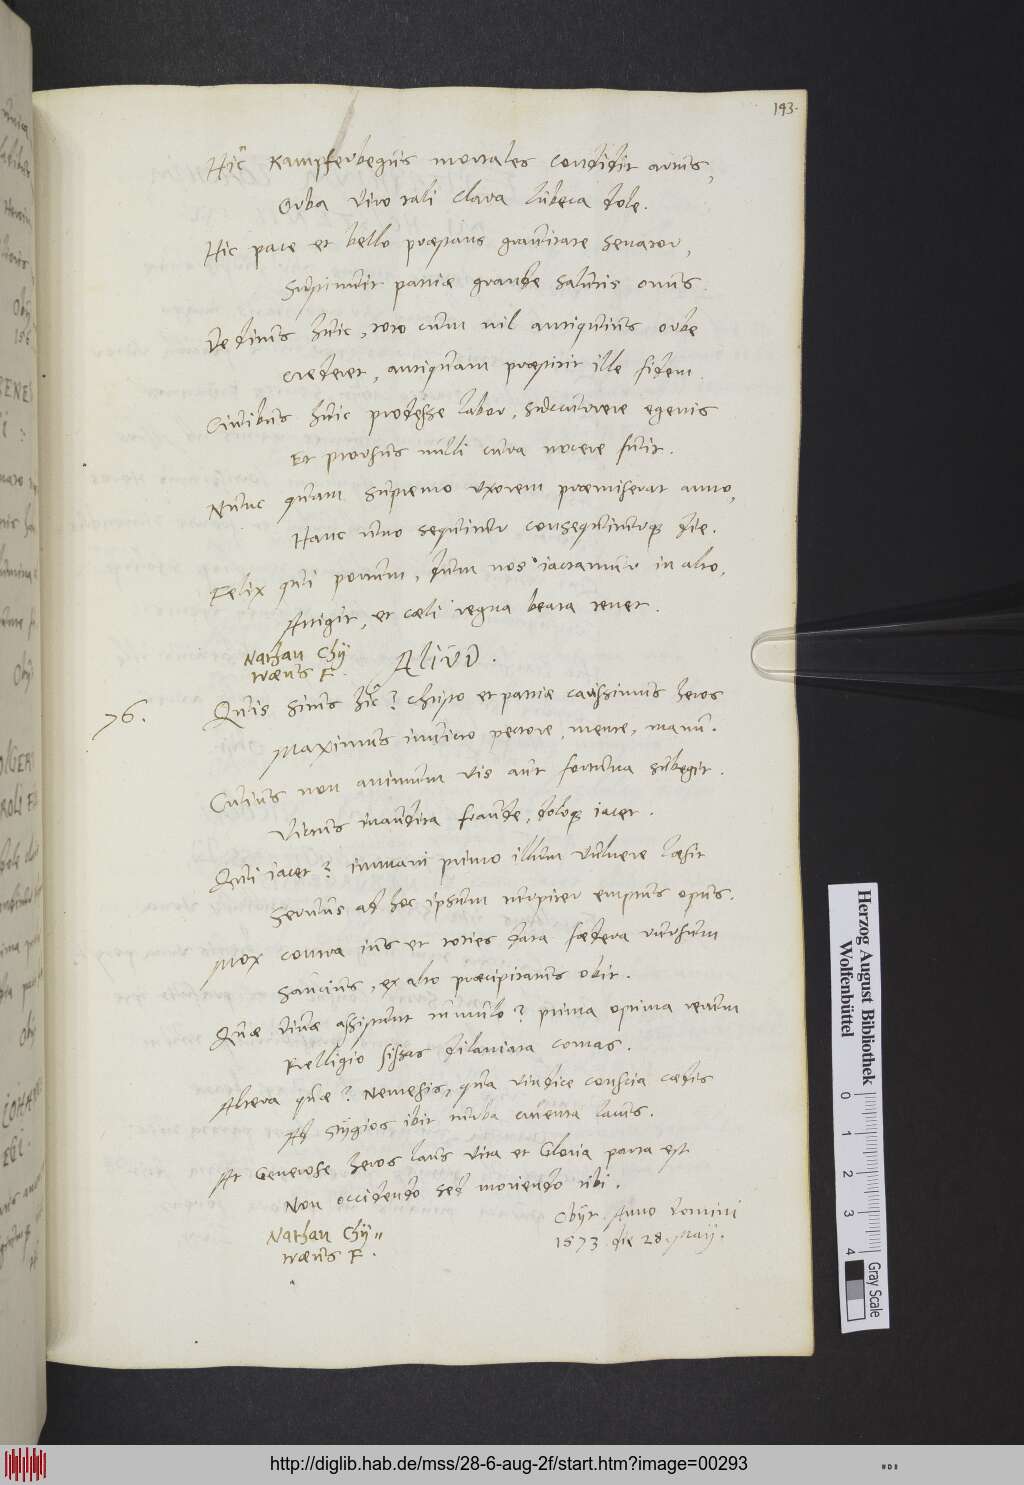 193.
Hic Kampferbegius mortales condidit artus,
Orba viro tali clara Lubeca dole.
Hic pace et bello præstans gravitate senator,
Sustinuit patriæ grande salutis onus.
Vedimus huic, toto cum nil antiquius orbe
crederet, antiquam præstitit ille fidem.
Civibus huic prodesse labor, succurrere egenis
Et prorsus nulli cura nocere fuit.
Nunc quam supremo uxorem præmiserat anno,
Hanc uno sequitur consequiturque die.
Felix qui portum, dum nos iactamur in alto,
Attigit, et cæli regna beata tenet.
Nathan Chy
træus F.
Aliud.
76.
Quis situs hic? Christo et patriæ carissimus heros
Maximus invicto pectore, mente, manu.
Cuius non animum vis aut fortuna subegit.
Victus inaudita fraude, doloque iacet.
Qui iacet? immani primo illum vulnere læsit
Servus ad hoc ipsum turpiter emptus opus.
Mox contra ius et toties data fœdera rursum
Saucius, ex alto præcipitatus obit.
Quæ divæ assistunt tumulo? prima optima rerum
Relligio fissas dilaniata comas.
Altera quæ? Nemesis, qua vindice conscia cædis
Ad Stygios ibit turba cruenta lacus.
At Generose heros laus vita et Gloria parta est
Non occidendo sed moriendo tibi.
Nathan Chy„
træus F.
Obijt Anno Domini
1573 die 28 Maij.
Herzog August Bibliothek
Wolfenbüttel
0 1 2 3 4
Gray Scale
http://diglib.hab.de/mss/28-6-aug-2f/start.htm?image=00293